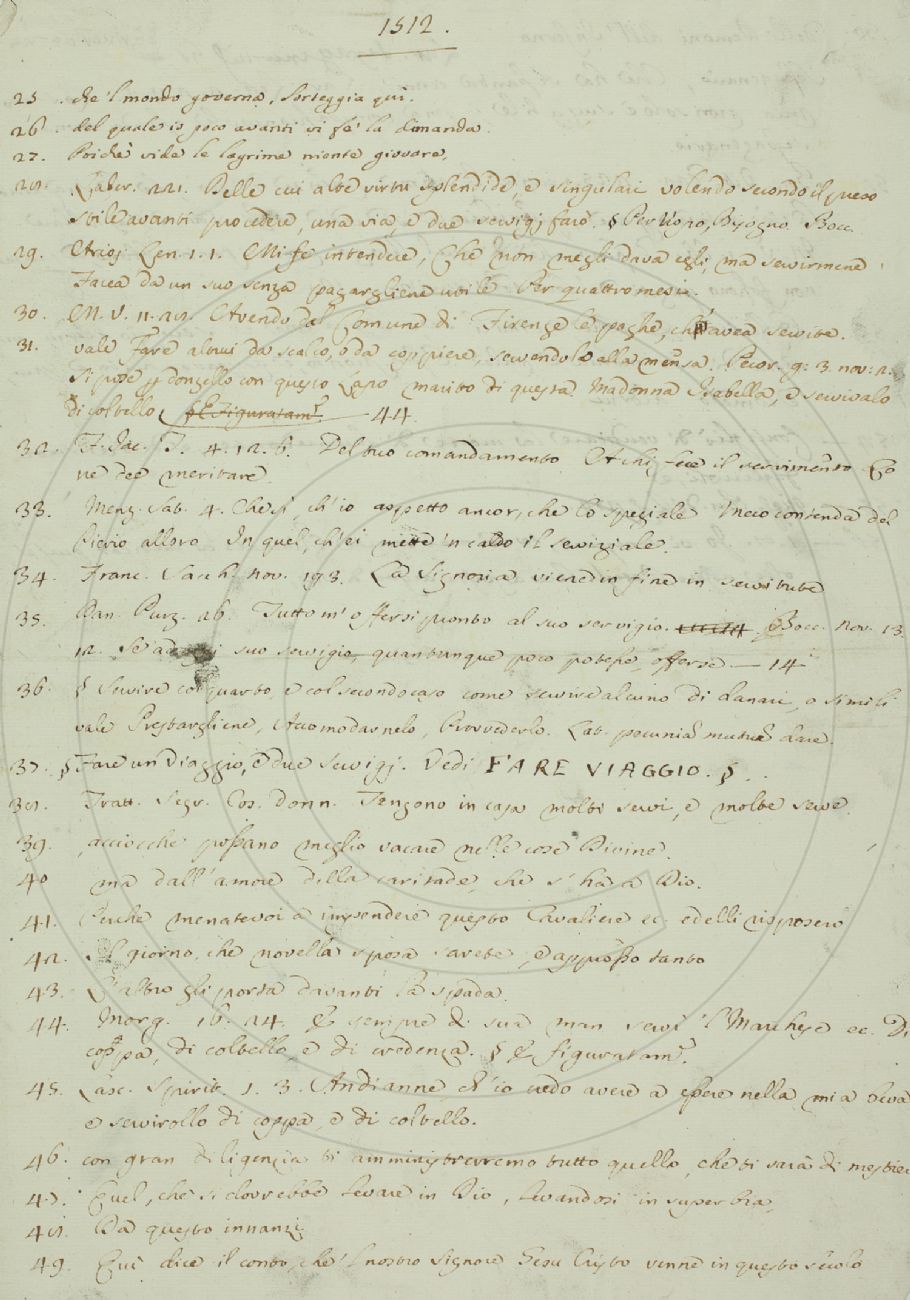 1512.
25 . che 'l mondo governa, sorteggia quì.
26 . del quale io poco avanti vi fe' la dimanda.
27. Poichè vide le lagrime niente giovare,
28. Laber. 221. Belle cui altre virtù splendide, e singulari volendo secondo il preso
stile avanti procedere, una via, e due servigj farò. § Per Uopo, Bisogno. Bocc.
29. Ariost. Len. 1. 1. Mi fe intendere, Che non me gli dava egli, ma servirmene
Facea da un suo senza pagargliene utile Per quattro mesi.
30. M. V. 11. 28. Avendo dal Comune di Firenze le paghe, ch' avea servite.
31. vale Fare altrui da scalco, o da coppiere, servendolo alla mensa. Pecor. g. 3. nov. 2.
Si pose p donzello con questo Lapo marito di questa Madonna Isabella, e servivalo
di coltello, § E Figuratam.e 44
32. F. Jac. T. 4. 12. 6. Del tuo comandamento A chi fece il servimento Co
ne dee meritare.
33. Menz. Sat. 4. Che sì, ch' io aspetto ancor, che lo speziale Meco contenda del
Pierio alloro In quel, ch' ei mette 'n caldo il serviziale.
34. Franc. Sacch. nov. 193. La Signoria viene in fine in servitute
35. Dan. Purg. 26. Tutto m' offersi pronto al suo servigio. Bocc. nov. 13.
12. Se ad suo servigio, quantunque poco potesse, offerse — 14
36. § Servire col quarto, e col secondo caso come servire alcuno di danari, o simili
vale Prestargliene, Accomodarnelo, Provvederlo. Lat. pecuniã mutuã dare.
37. § Fare un viaggio, e due servigj. Vedi FARE VIAGGIO. §. .
38. Tratt. Segr. Cos. Donn. Tengono in casa molti servi, e molte serve.
39. acciocchè possano meglio vacare nelle cose Divine.
40 ma dall' amore della caritade, che s' ha a Dio.
41. Perchè menatevoi a impendere questo Cavaliere ec. ed elli risposero
42. Il giorno, che novella sposa sarete, e appresso tanto
43. L' altro gli porta davanti la spada.
44. Morg. 16. 24. E sempre di sua man servì 'l Marchese ec. Di
coppa, di coltello, e di credenza. § E figuratam.e
45. Lasc. Spirit. 1. 3. Andianne, ch' io credo avere a essere nella mia beva
e servirollo di coppa, e di coltello.
46. con gran diligenzia ti amministrerremo tutto quello, che ti sarà di mestier
47. Quel, che si dovrebbe levare in Dio, levandosi in superbia,
48. Da questo innanzi
49. Quì dice il conto, che 'l nostro Signore Gesu Cristo venne in questo secolo